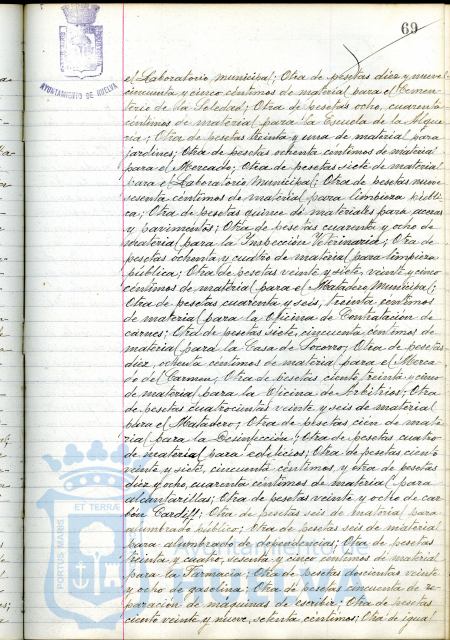 69
AYUNTAMIENTO DE HUELVA
el Laboratorio municipal; Otra de pesetas diez y nueve
cincuenta y cinco céntimos de material para el Cemen-
terio de la Soledad; Otra de pesetas ocho, cuarenta
céntimos de material para la Escuela de la Alque
ria; Otra de pesetas treinta y una de material para
jardines; Otra de pesetas ochenta céntimos de material
para el Mercado; Otra de pesetas siete de material
para el Laboratorio Municipal; Otra de pesetas nueve
sesenta céntimos de material para limpieza públi
ca; Otra de pesetas quince de materiales para aceras
y pavimentos; Otra de pesetas cuarenta y ocho de
material para la Inspección Veterinaria; Otra de
pesetas ochenta y cuatro de material para limpieza
pública; Otra de pesetas veinte y siete, veinte y cinco
céntimos de material para el Matadero Municipal;
Otra de pesetas cuarenta y seis, treinta céntimos
de material para la Oficina de Contratación de
carnes; Otra de pesetas siete, cincuenta céntimos de
material para la Casa de Socorro; Otra de pesetas
diez, ochenta céntimos de material para el Merca
do del Carmen; Otra de pesetas ciento treinta y cinco
de material para la Oficina de Arbitrios; Otra
de pesetas cuatrocientas veinte y seis de material
para el Matadero; Otra de pesetas cien de mate
rial para la Desinfección; Otra de pesetas cuatro
de material para edificios; Otra de pesetas ciento
veinte y siete, cincuenta céntimos, y otra de pesetas
diez y ocho, cuarenta céntimos de material para
alcantarillas; Otra de pesetas veinte y ocho de car
bón Cardiff; Otra de pesetas seis de material para
alumbrado público; Otra de pesetas seis de material
para alumbrado de dependencias; Otra de pesetas
treinta y cuatro, sesenta y cinco céntimos de material
para la Farmacia; Otra de pesetas doscientas veinte
y ocho de gasolina; Otra de pesetas cincuenta de re-
paración de máquinas de escribir; Otra de pesetas
ciento veinte y nueve, setenta céntimos; Otra de igual
PORTUS MARIS
ET TERRAE
Ayuntamiento de